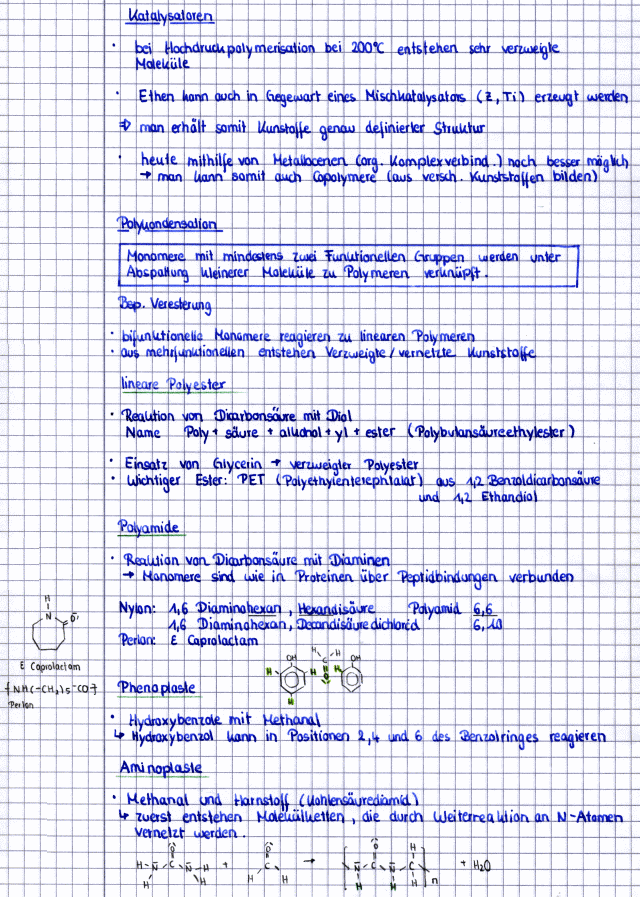 Katalysatoren
· bei Hochdruckpolymerisation bei 200°C entstehen sehr verzweigte
Moleküle
· Ethen kann auch in Gegenwart eines Mischkatalysators (Z, Ti) erzeugt werden
⇒ man erhält somit Kunstoffe genau definierter Struktur
· heute mithilfe von Metallocenen (org. Komplexverbind.) noch besser möglich
→ man kann somit auch Copolymere (aus versch. Kunststoffen bilden)
Polykondensation
Monomere mit mindestens zwei Funktionellen Gruppen werden unter
Abspaltung kleinerer Moleküle zu Polymeren verknüpft.
Bsp. Veresterung
· bifunktionelle Monomere reagieren zu linearen Polymeren
· aus mehrfunktionellen entstehen Verzweigte/vernetzte Kunststoffe
lineare Polyester
· Reaktion von Dicarbonsäure mit Diol
Name Poly + säure + alkohol + yl + ester (Polybutansäureethylester)
· Einsatz von Glycerin → verzweigter Polyester
· Wichtiger Ester: PET (Polyethylenterephtalat) aus 1,2 Benzoldicarbonsäure
und 1,2 Ethandiol
Polyamide
· Reaktion von Dicarbonsäure mit Diaminen
→ Monomere sind wie in Proteinen über Peptidbindungen verbunden
Nylon: 1,6 Diaminohexan, Hexandisäure Polyamid 6,6
1,6 Diaminohexan, Decandisäuredichlorid 6,10
Perlon: ε Caprolactam
H
N
O
ε Caprolactam
[NH(-CH2)5-CO]
Perlon
OH H H OH
H H C H
O
H
Phenoplaste
· Hydroxybenzole mit Methanal
↳ Hydroxybenzol kann in Positionen 2,4 und 6 des Benzolringes reagieren
Aminoplaste
· Methanal und Harnstoff (Kohlensäurediamid)
↳ zuerst entstehen Molekülketten, die durch Weiterreaktion an N-Atomen
vernetzt werden.
O O O H
H-N C N-H + C → [ N C N C ]n + H2O
H H H H H H H